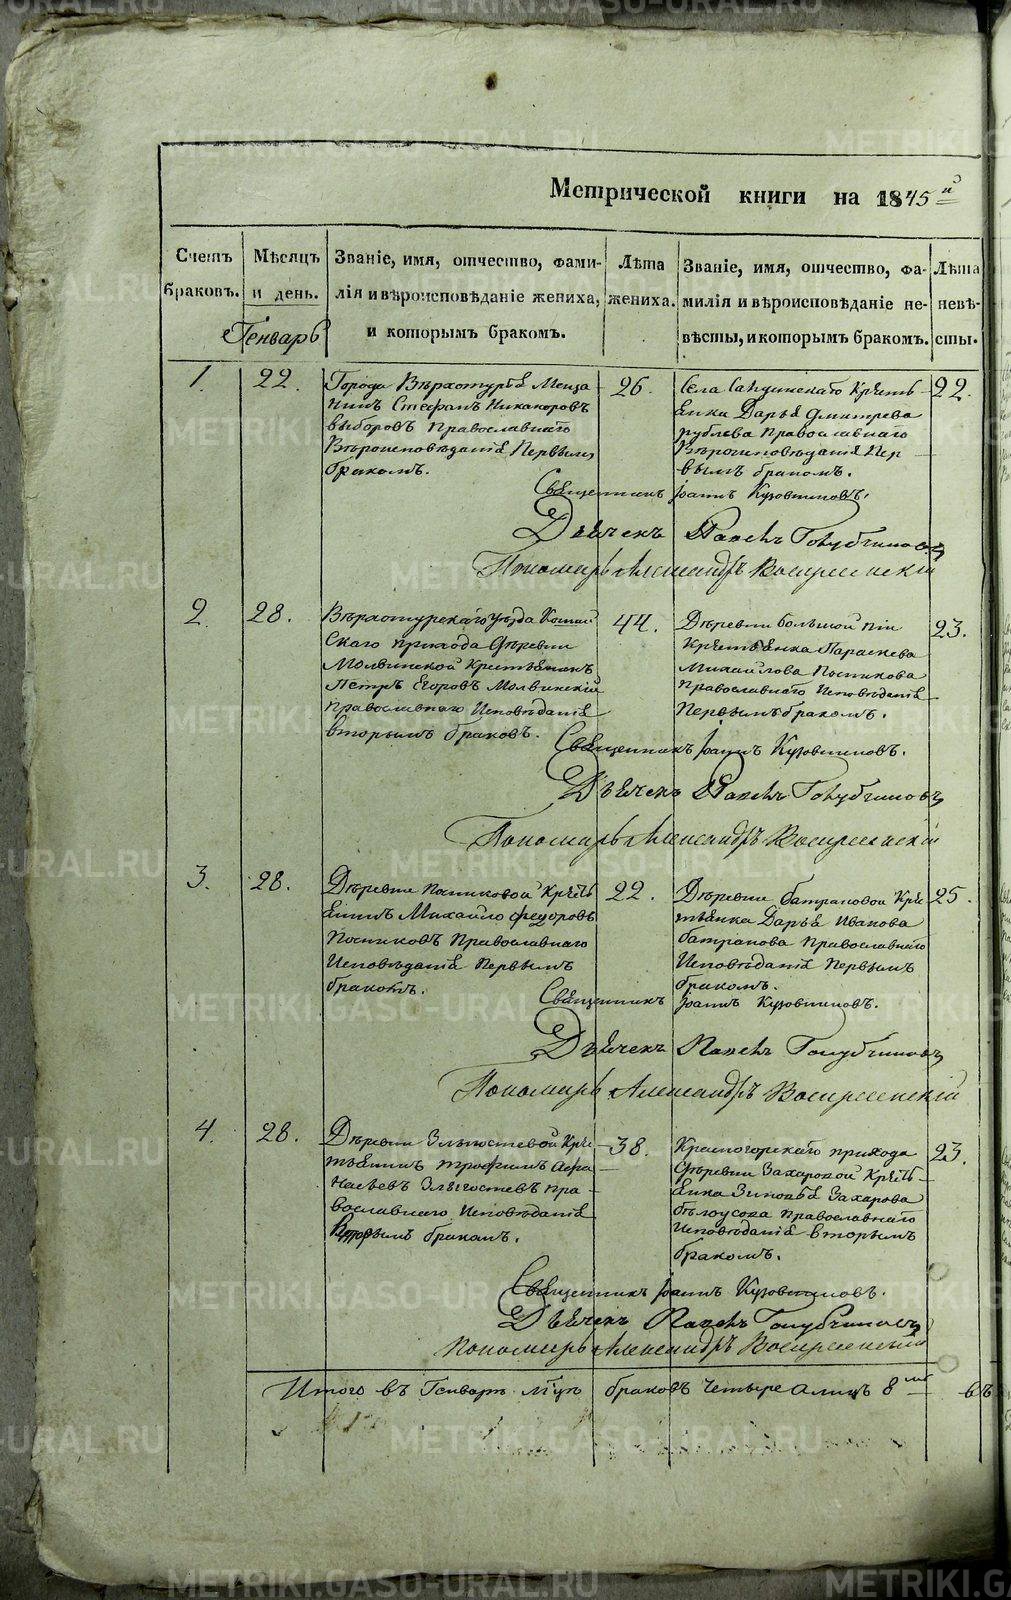 Метрической книги на 1845й
Счетъ браковъ.
Мѣсяцъ и день.
Званіе, имя, отчество, фамилія и вѣроисповѣданіе жениха, и которымъ бракомъ.
Лѣта жениха.
Званіе, имя, отчество, фамилія и вѣроисповѣданіе невѣсты, и которымъ бракомъ.
Лѣта невѣсты.
Генварь
1.
22.
Города Верхотурья Меща
нинъ Стефанъ Никаноровъ
Выборовъ Православнаго
Вѣроисповѣданія Первымъ
бракомъ.
26.
Села
Кресть
янка Дарья Дмитрева
Рублева Православнаго
Вѣроисповѣданія Пер
вымъ бракомъ.
22.
Священникъ Іоаннъ Кузовниковъ.
Дьячекъ Павелъ Голубчиковъ
Пономарь Александръ Воскресенскій
2.
28.
Верхотурскаго уѣзда
скаго прихода Деревни
Молвинской Крестьянинъ
Петръ Егоровъ Молвинскій
Православнаго Исповѣданія
вторымъ браковъ.
44.
Деревни большой
Крестьянка Параскева
Михайлова Посникова
Православнаго Исповѣданія
Первымъ бракомъ.
23.
Священникъ Іоаннъ Кузовниковъ.
Дьячекъ Павелъ Голубчиковъ
Пономарь Александръ Воскресенскій
3.
28.
Деревни Посниковой Кресть
янинъ Михайло Федоровъ
Посниковъ Православнаго
Исповѣданія Первымъ
бракомъ.
22.
Деревни батраковой Кре
стьянка Дарья Иванова
батракова Православнаго
Исповѣданія Первымъ
бракомъ.
25.
Священникъ Іоаннъ Кузовниковъ.
Дьячекъ Павелъ Голубчиковъ
Пономарь Александръ Воскресенскій
4.
28.
Деревни Злыгостевой Кре
стьянинъ Трофимъ Афа
насьевъ Злыгостевъ Пра
вославнаго Исповѣданія
Вторымъ бракомъ.
38.
Красногорскаго прихода
Деревни Захаровой Кресть
янка Зиновья Захарова
бѣлоусова Православнаго
Исповѣданія вторымъ
бракомъ.
23.
Священникъ Іоаннъ Кузовниковъ.
Дьячекъ Павелъ Голубчиковъ
Пономарь Александръ Воскресенскій
Итого въ Генварѣ
браковъ четыре а лицъ 8
METRIKI.GASO-URAL.RU